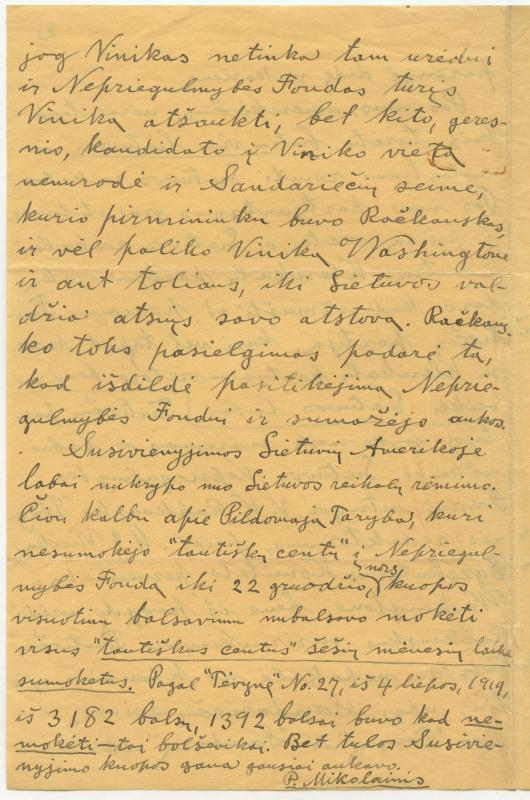 jog Vinikas netinka tam urėdui
ir Nepriegulmybės Fondas turįs
Viniką atšaukti, bet kito, geres-
nio, kandidato į Viniko vietą
nenurodė ir Sandariečių seime,
kurio pirmininku buvo Račkauskas,
ir vėl paliko Viniką Washingtone
ir ant toliaus, iki Lietuvos val-
džia atsiųs savo atstovą. Račkaus-
ko toks pasielgimas padarė tą,
kad išdildė pasitikėjimą Neprie-
gulmybės Fondui ir sumažėjo aukos.
Susivienyjimas Lietuvių Amerikoje
labai nukrypo nuo Lietuvos reikalų rėmimo.
Čion kalbu apie Pildomąją Tarybą, kuri
nesumokėjo "tautiškų centų" į Nepriegul-
mybės Fondą iki 22 gruodžio, nors kuopos
visuotinu balsavimu nubalsavo mokėti
visus "tautiškus centus" šešių mėnesių laike
sumoketus. Pagal "Tėvynę" No. 27, iš 4 liepos, 1919,
iš 3182 balsų, 1392 balsai buvo kad ne-
mokėti – tai bolševikai. Bet tulos Susivie-
nyjimo kuopos gana gausiai aukavo.
P. Mikolainis